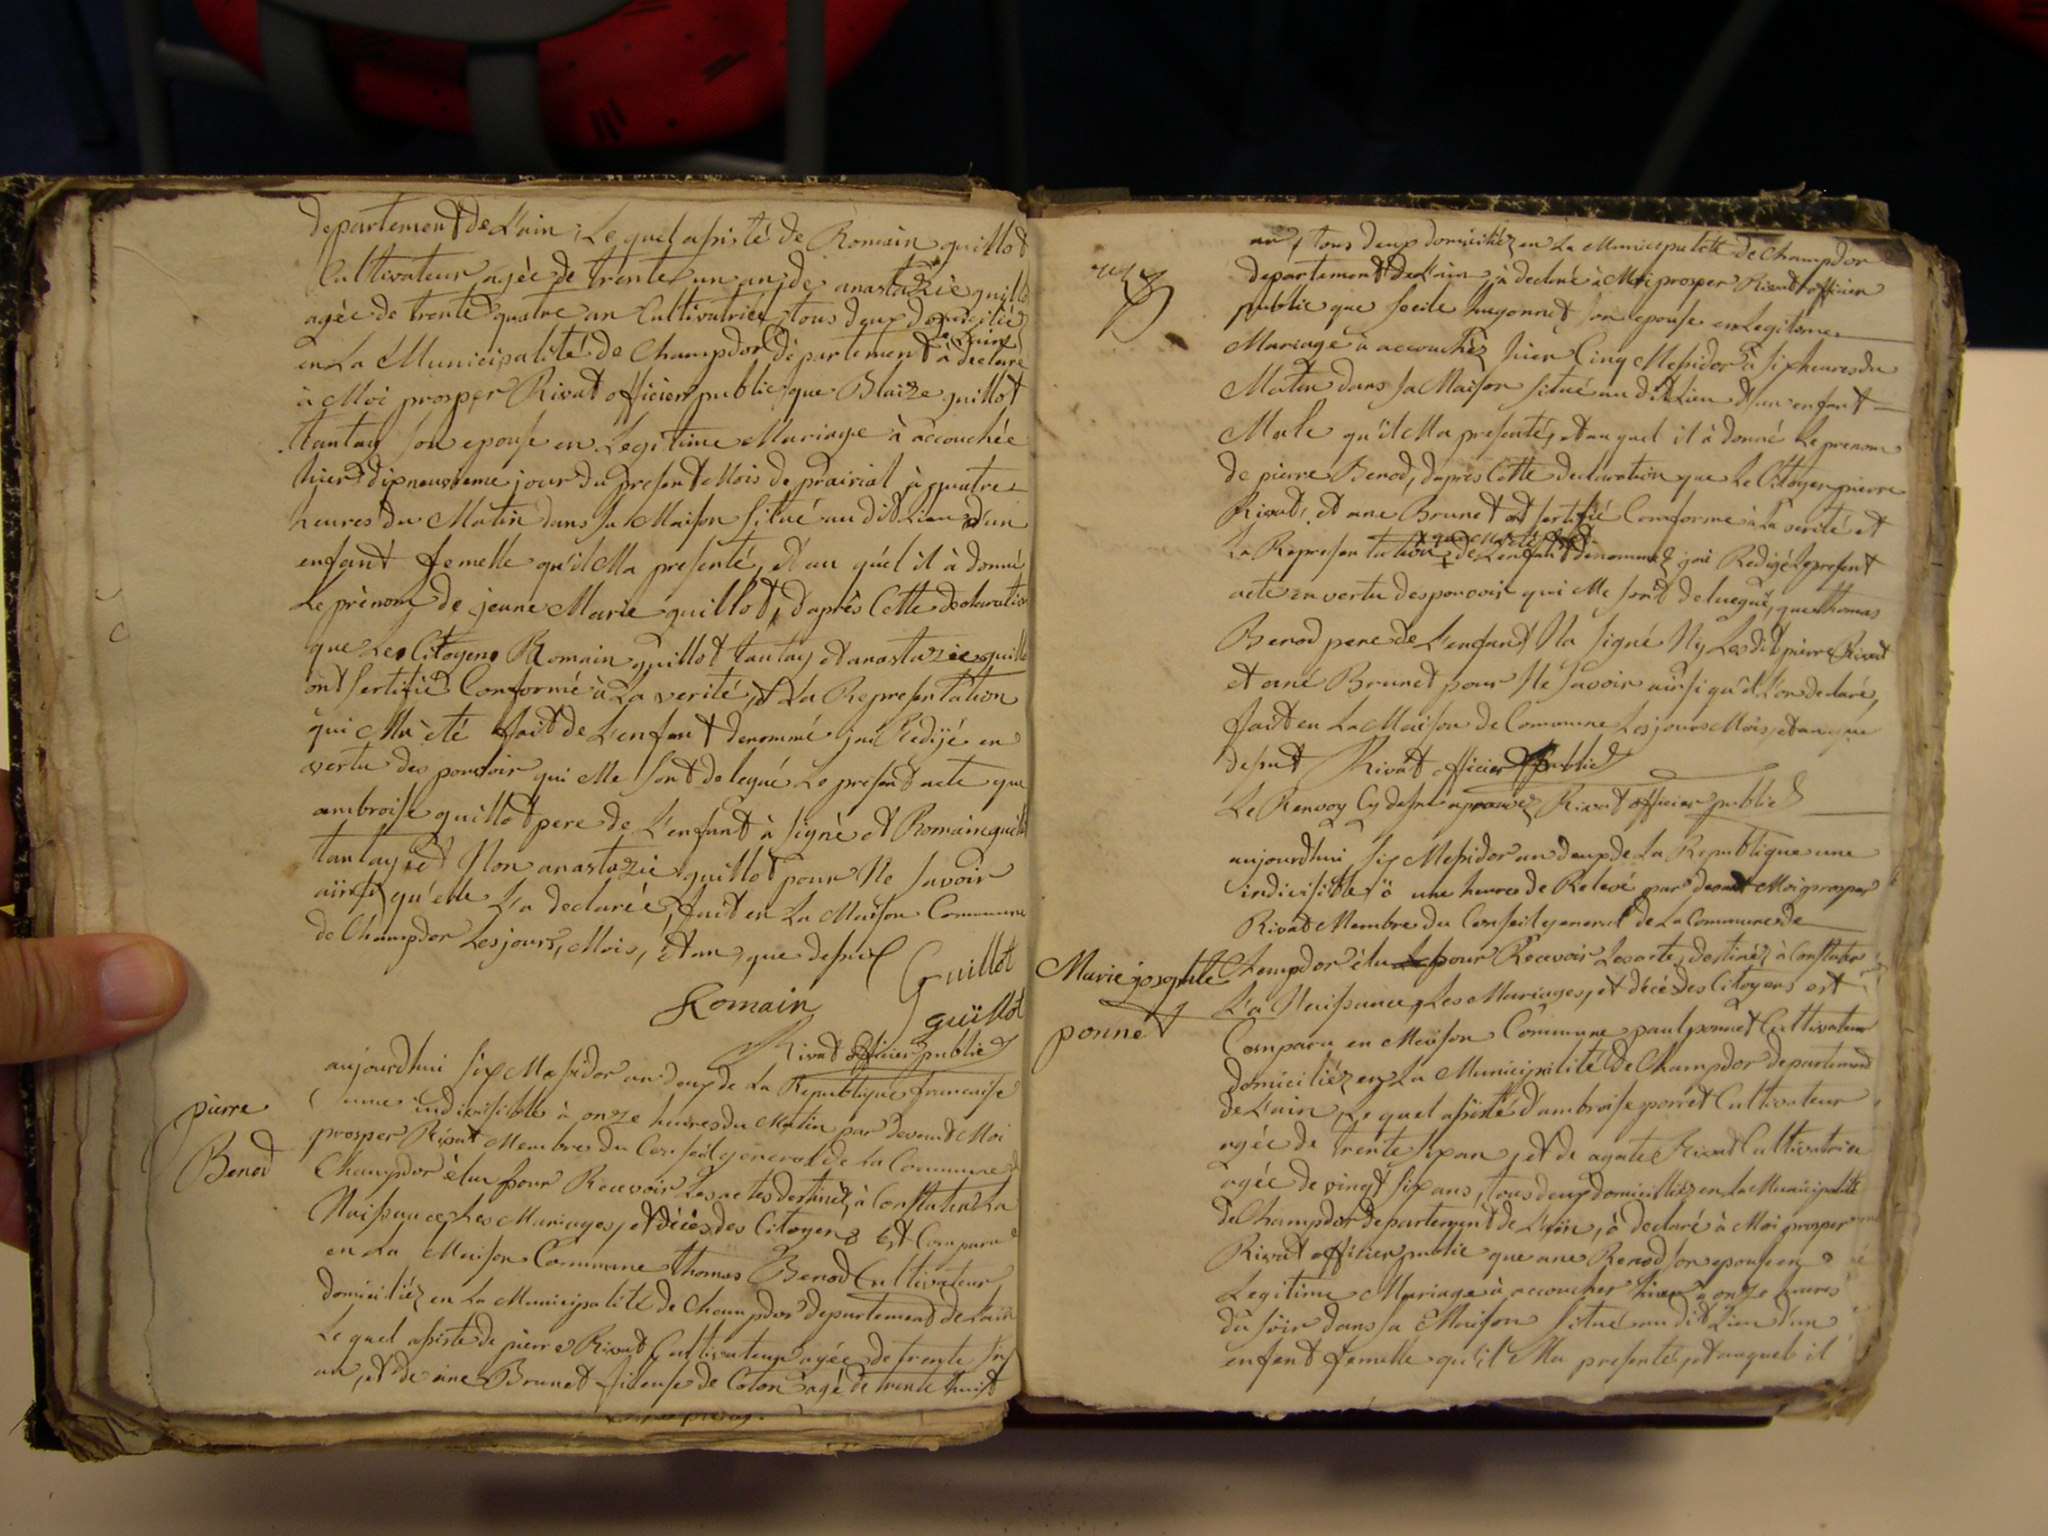 departement de L'ain, Le quel assisté de Romain guillot
Cultivateur agée de trente un an, de anastazie guillot
agée de trente quatre an Cultivatrice, tous deux domicilié
en La Municipalité de Champdor departement de Lain à declaré
à Moi prosper Rivat officier public, que Blaize guillot
tantay son epouse en Legitime Mariage à accouchée
hier dixneuvieme jour du present Mois de prairial à quatre
heures du Matin dans sa Maison situé au dit Lieu d'un
enfant femelle qu'il Ma presenté, et au quel il à donné
Le prènom de jeane Marie guillot, d'après Cette declaration
que Les Citoyens Romain guillot tantay et anastazie guillot
ont sertifié Conforme à La verité et La Representation
qui M'à èté fait de L'enfant denommé jai Rédijé en
vertu des pouvoir qui Me sont delegué Le present acte que
ambroise guillot pere de L'enfant à signè et Romain guillot
tantay et Non anastazie guillot pour Ne savoir
ainsi qu'elle L'a declarée, fait en La Maison Commune
de Champdor Les jours, Mois, et an que dessus
Guillot
Romain guillot
Rivat officier public
pierre
Benod
aujourdhui six Messidor an deux de La Republique francaise
une indivisible à onze heures du Matin par devant Moi
prosper Rivat Membre du Conseil general de La Commune de
Champdor èlu pour Recevoir Les actes destinéz à Constater La
Naissance, Les Mariages, et décès des Citoyens Est Comparu
en La Maison Commune thomas Benod Cultivateur
domiciliéz en La Municipalité de Champdor departement de Lain
Le quel assiste de pierre Rivat Cultivateur agée de trente six
an, et de ane Brunet fileuse de Coton agé de trente huit
an, tous deux domiciliéz en La Municipalité de Champdor
departement de Lain, à declaré à Moi prosper Rivat officier
public que secile hugonnet son epouse en Legitime
Mariage à accouchéz hier Cinq Messidor à six heures du
Matin dans sa Maison situé au dit Lieu d'un enfant
Male qu'il Ma presenté, et au quel il à donné Le prenom
de pierre Benod, d'apres Cette declaration que Le Citoyen pierre
Rivat, et ane Brunet ont sertifié Conforme à La verité et
La Representation de L'enfant denommez jai Redigé Le present
acte en vertu des pouvoir qui Me sont delegué, que thomas
Benod pere de L'enfant Na signé Ny Les dit pierre Rivat
et ané Brunet pour Ne savoir ainsi qu'il L'on declaré,
fait en La Maison de Commune Les jours Mois, et an que
desus Rivat officier public
Le Renvoy Cy desus aprouvez Rivat officier public
Marie josephte
ponnet
aujourdhui six Messidor an deux de La Republique une
indivisible à une heures de Relevé par devant Moi prosper
Rivat Membre du Conseil general de La Commune de
Champdor élu pour Recevoir Les acte, destinéz à Constater
La Naissance, Les Mariages, et décé des Citoyens est
Comparu en Maison Commune paul ponnet Cultivateur
domiciliéz en La Municipalité de Champdor departement
de L'ain, Le quel assisté d'ambroise ponnet Cultivateur
agée de trente six an, et de agate Rivat Cultivatrice
agée de vingt six ans, tous deux domiciliéz en La Municipalité
de Champdor departement de L'ain, à declaré à Moi prosper
Rivat officier public que ane Benod son epouse en
Legitime Mariage à accoucher hier à onze heures
du soir dans sa Maison situé au dit Lieu d'un
enfant femelle qu'il Ma presenté, et auquel il